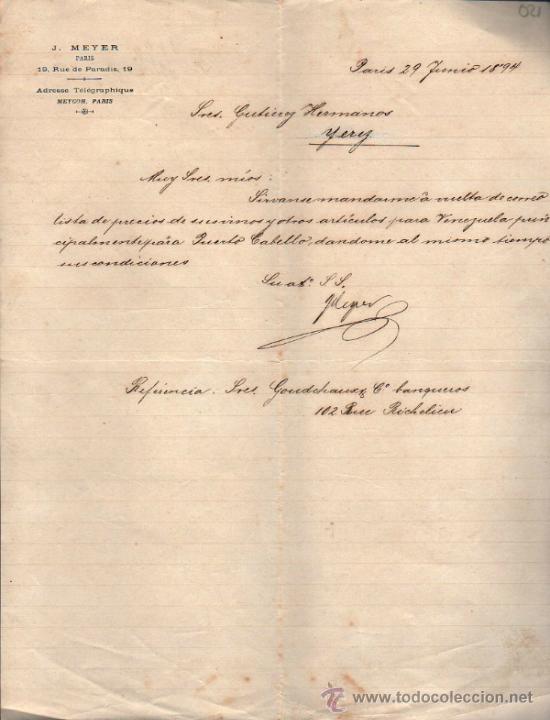 021
J. MEYER
PARIS
19, Rue de Paradis, 19
Adresse Télégraphique
MEYGOR, PARIS
Paris 29 Junio 1894
Sres. Gutierez Hermanos
Xerez
Muy Sres. mios:
Sirvanse mandarme à vuelta de correo
lista de precios de sus vinos y otros articulos para Venezuela prin
cipalemente para Puerto Cabello, dandome al mismo tiempo
sus condiciones
Su at.º S. S.
JMeyer
Referencia. Sres. Goudchaux & Cº banqueros
102 Rue Richelieu
todocoleccion
www.todocoleccion.net